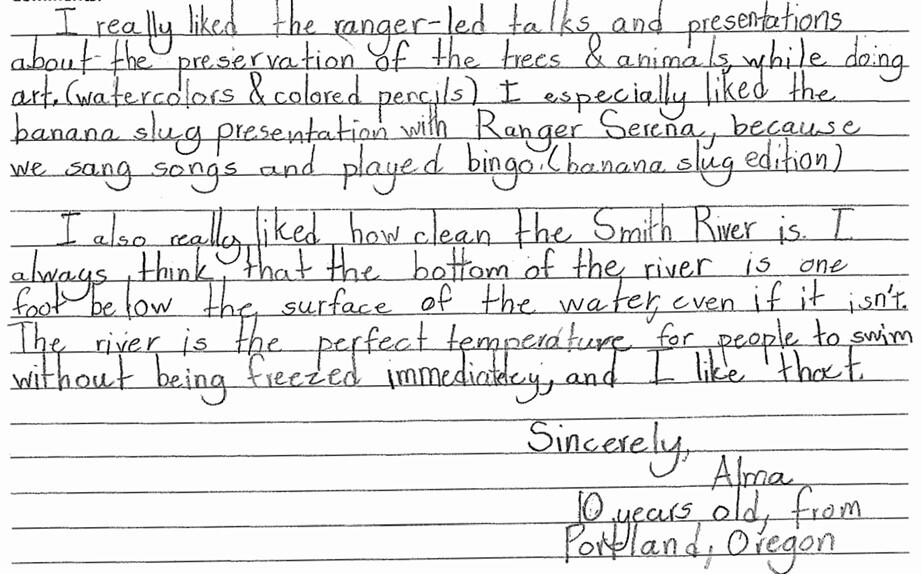 I really liked the ranger-led talks and presentations
about the preservation of the trees & animals, while doing
art. (watercolors & colored pencils) I especially liked the
banana slug presentation with Ranger Serena, because
we sang songs and played bingo. (banana slug edition)
I also really liked how clean the Smith River is. I
always think that the bottom of the river is one
foot below the surface of the water, even if it isn't.
The river is the perfect temperature for people to swim
without being freezed immediatley, and I like that.
Sincerely,
Alma
10 years old, from
Portland, Oregon